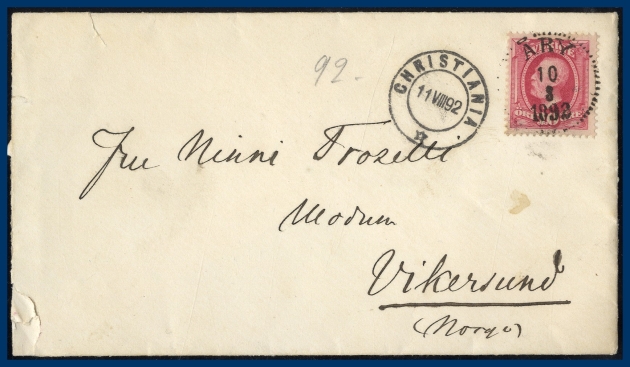 ÅBY
10
8
1892
92.
CHRISTIANIA
11 VIII 92
B
Fru Ninni Trozelli
Modum
Vikersund
(Norge)